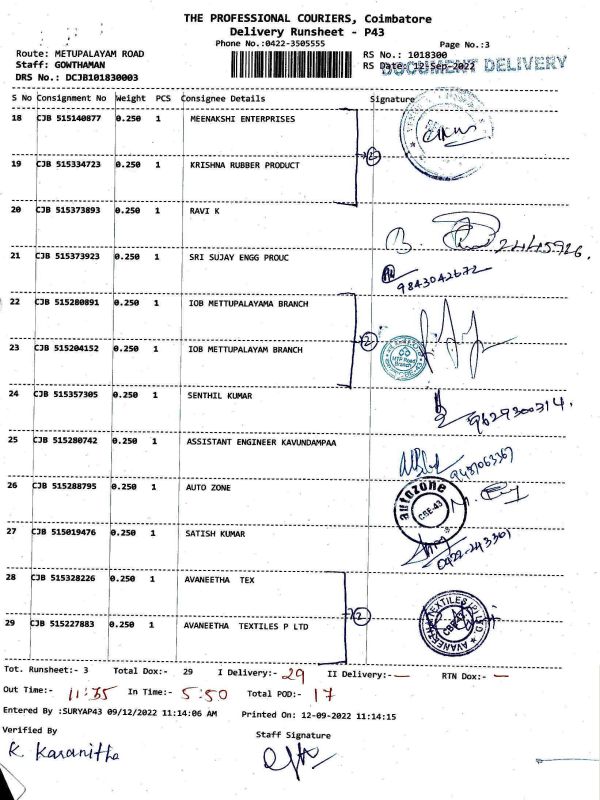 THE PROFESSIONAL COURIERS, Coimbatore
Delivery Runsheet - P43
Phone No.:0422-3505555
Page No.:3
Route: METUPALAYAM ROAD
RS No.: 1018300
Staff: GOWTHAMAN
RS Date: 12-Sep-2022
DOCUMENT DELIVERY
DRS No.: DCJB101830003
S No Consignment No Weight PCS Consignee Details Signature
18 CJB 515140877 0.250 1 MEENAKSHI ENTERPRISES
19 CJB 515334723 0.250 1 KRISHNA RUBBER PRODUCT
2
20 CJB 515373893 0.250 1 RAVI K
21 CJB 515373923 0.250 1 SRI SUJAY ENGG PROUC
9843042672
22 CJB 515280891 0.250 1 IOB METTUPALAYAMA BRANCH
2
23 CJB 515204152 0.250 1 IOB METTUPALAYAM BRANCH
MTP Road
Branch
24 CJB 515357305 0.250 1 SENTHIL KUMAR
9629300314.
25 CJB 515280742 0.250 1 ASSISTANT ENGINEER KAVUNDAMPAA
26 CJB 515288795 0.250 1 AUTO ZONE
autozone
CBE-43
27 CJB 515019476 0.250 1 SATISH KUMAR
28 CJB 515328226 0.250 1 AVANEETHA TEX
2
29 CJB 515227883 0.250 1 AVANEETHA TEXTILES P LTD
AVANEETHA TEXTILES P LTD
Tot. Runsheet:- 3 Total Dox:- 29 I Delivery:- 29 II Delivery:- — RTN Dox:- —
Out Time:- 11:35 In Time:- 5:50 Total POD:- 17
Entered By :SURYAP43 09/12/2022 11:14:06 AM Printed On: 12-09-2022 11:14:15
Verified By
Staff Signature
K. Karanitha